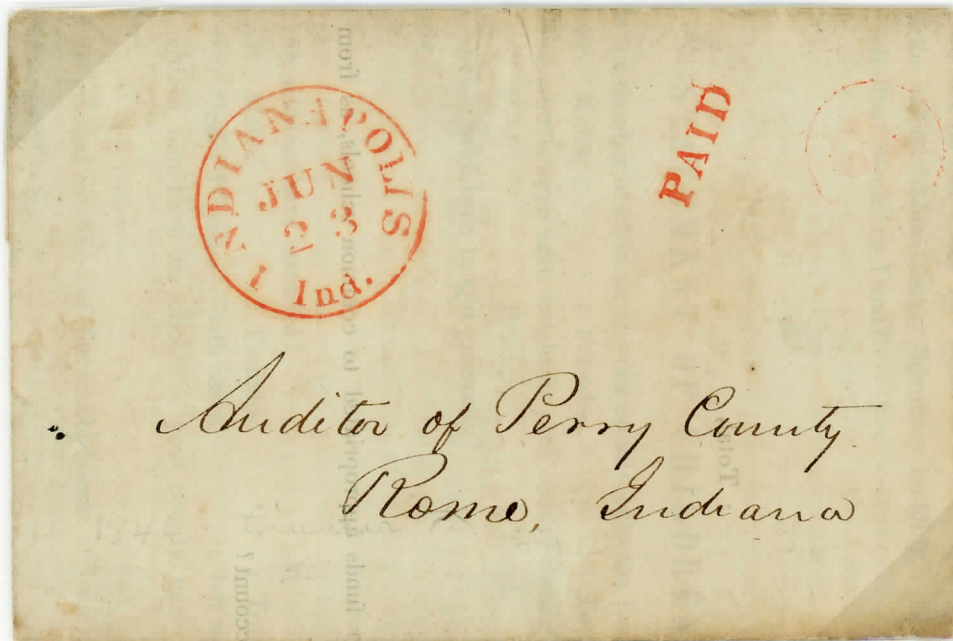 INDIANAPOLIS
JUN
23
Ind.
PAID
Auditor of Perry County
Rome, Indiana